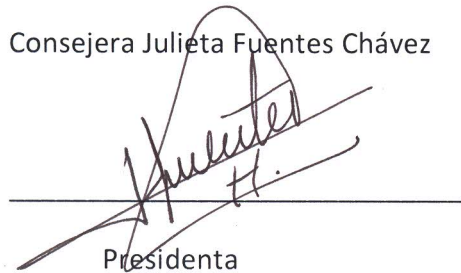 Consejera Julieta Fuentes Chávez
Presidenta